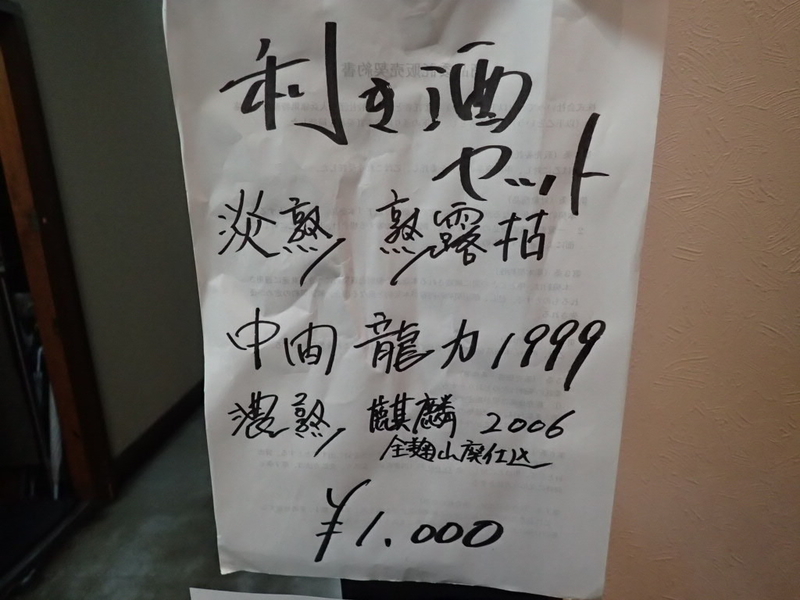 利き酒
セット
淡熟 熟露枯
中間 龍力 1999
濃熟 麒麟 2006
全麹山廃仕込
¥1.000